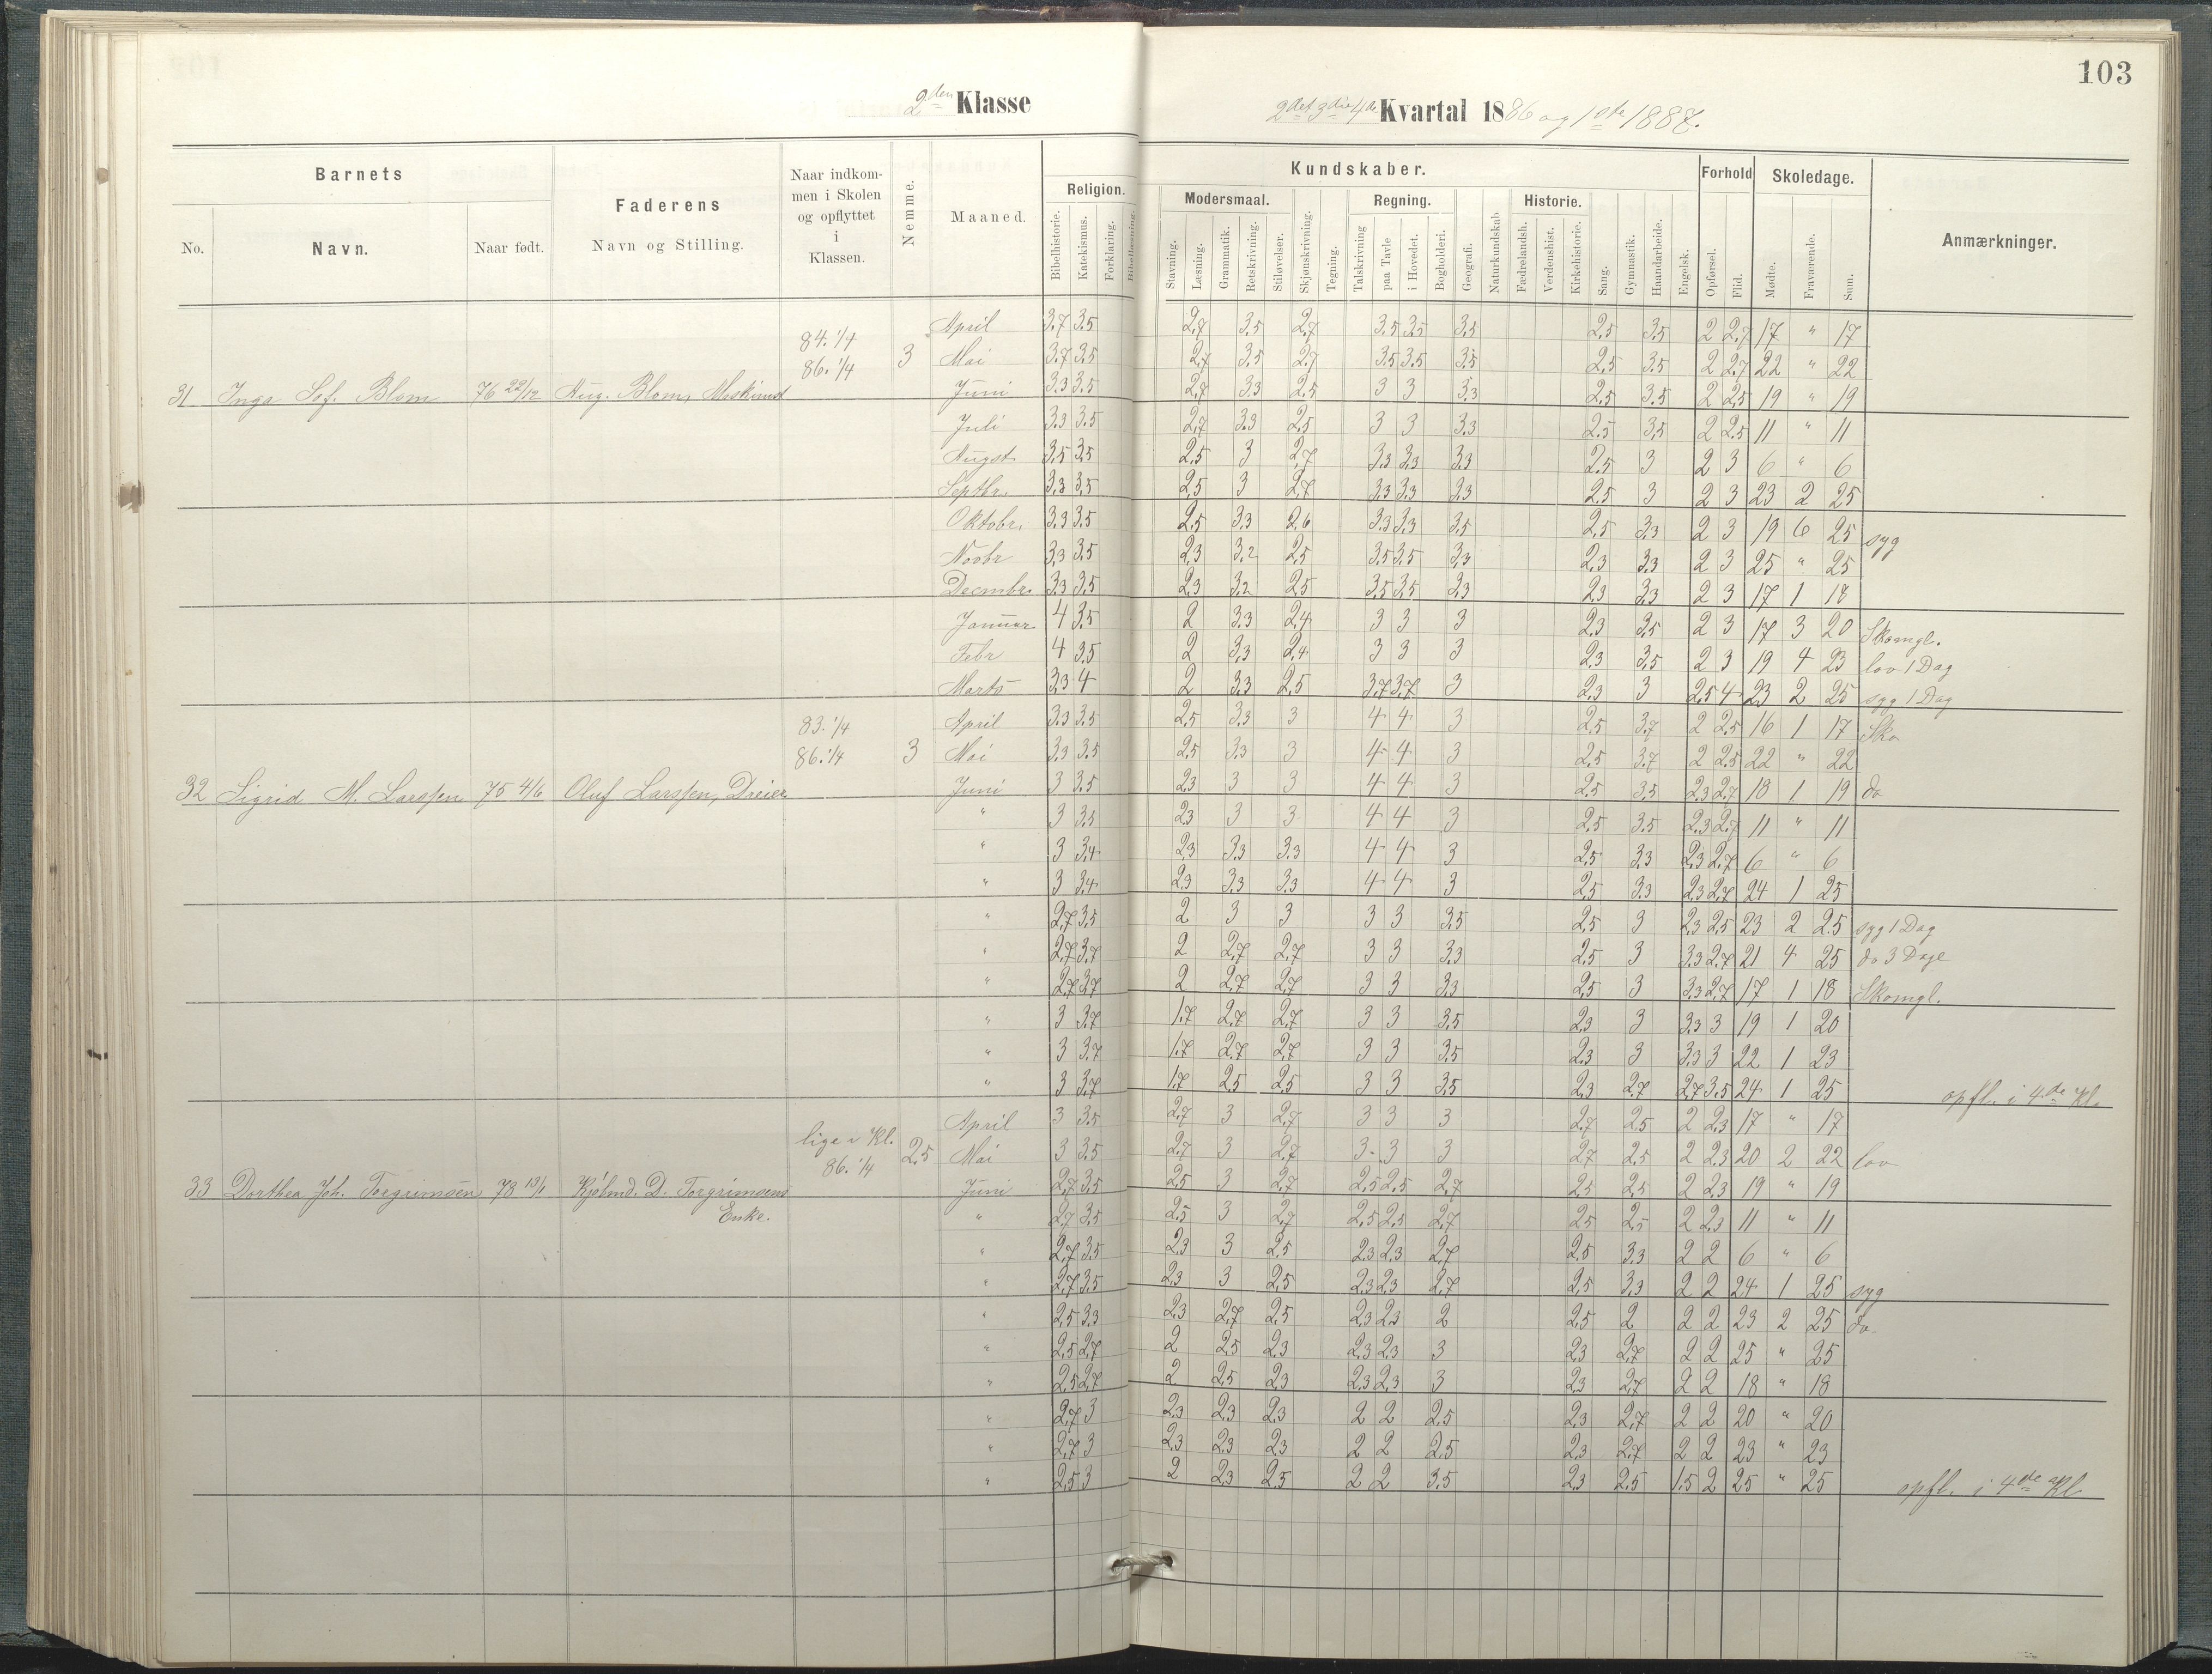 103
2den Klasse
2det 3die 4de Kvartal 1886 og 1ste 1887.
Barnets
No.
Navn.
Naar født.
Faderens
Navn og Stilling.
Naar indkom-
men i Skolen
og opflyttet
i
Klassen.
Nemme.
Maaned.
Kundskaber.
Religion.
Bibelhistorie.
Katekismus.
Forklaring.
Bibellæsning.
Modersmaal.
Stavning.
Læsning.
Grammatik.
Retskrivning.
Stiløvelser.
Skjønskrivning.
Tegning.
Regning.
Talskrivning
paa Tavle
i Hovedet.
Bogholderi.
Geografi.
Naturkundskab.
Historie.
Fædrelandsh.
Verdenshist.
Kirkehistorie.
Sang.
Gymnastik.
Haandarbeide.
Engelsk.
Forhold
Opførsel.
Flid.
Skoledage.
Mødte.
Fraværende.
Sum.
Anmærkninger.
84. 1/4
86. 1/4
3
31 Inga Sof. Blom 76 22/12 Aug. Blom, Maskinist
April 3.7 3.5 2,7 3.5 2,7 3.5 3.5 3.5 2,5 3.5 2 2.7 17 " 17
Mai 3.7 3.5 2,7 3.5 2,7 3.5 3.5 3.5 2,5 3.5 2 2.7 22 " 22
Juni 3.3 3.5 2,7 3.3 2,5 3 3 3.3 2,5 3.5 2 2,5 19 " 19
Juli 3.3 3.5 2,7 3.3 2,5 3 3 3.3 2.5 3,5 2 2.5 11 " 11
Augst. 3.5 3.5 2,5 3 2,7 3.3 3.3 3.3 2.5 3 2 3 6 " 6
Septbr. 3.3 3.5 2,5 3 2,7 3.3 3.3 3.3 2,5 3 2 3 23 2 25
Oktobr. 3.3 3.5 2,5 3.3 2,6 3.3 3.3 3.5 2,5 3.3 2 3 19 6 25 syg
Novbr 3.3 3.5 2,3 3.2 2,5 3.5 3.5 3.3 2,3 3.3 2 3 25 " 25
Decmbr. 3.3 3.5 2,3 3.2 2,5 3.5 3.5 3.3 2,3 3.3 2 3 17 1 18
Januar 4 3.5 2 3.3 2,4 3 3 3 2,3 3.5 2 3 17 3 20 Skomgl.
Febr 4 3.5 2 3.3 2,4 3 3 3 2.3 3,5 2 3 19 4 23 lov 1 Dag
Marts 3.3 4 2 3.3 2,5 3.7 3.7 3 2,3 3 2,5 4 23 2 25 syg 1 Dag
83. 1/4
86. 1/4
3
32 Sigrid M. Larssen 75 4/6 Oluf Larssen, Dreier
April 3.3 3.5 2,5 3.3 3 4 4 3 2,5 3.7 2 2,5 16 1 17 Sko
Mai 3.3 3.5 2,5 3.3 3 4 4 3 2,5 3.7 2 2,5 22 " 22
Juni 3 3.5 2,3 3 3 4 4 3 2,5 3,5 2,3 2,7 18 1 19 do
" 3 3.5 2,3 3 3 4 4 3 2,5 3.5 2,3 2,7 11 " 11
" 3 3.4 2,3 3.3 3.3 4 4 3 2,5 3.3 2,3 2,7 6 " 6
" 3 3.4 2,3 3.3 3.3 4 4 3 2,5 3.3 2,3 2,7 24 1 25
" 2,7 3.5 2 3 3 3 3 3.5 2,5 3 2,3 2,5 23 2 25 syg 1 Dag
" 2,7 3.7 2 2,7 2,7 3 3 3.3 2,5 3 3.3 2,7 21 4 25 do 3 Dage
" 2,7 3.7 2 2,7 2,7 3 3 3.3 2,5 3 3.3 2,7 17 1 18 Skomgl.
" 3 3.7 1.7 2,7 2,7 3 3 3.5 2,3 3 3.3 3 19 1 20
" 3 3.7 1.7 2,7 2,7 3 3 3.5 2,3 3 3.3 3 22 1 23
" 3 3.7 1.7 2,5 2,5 3 3 3.5 2,3 2,7 2,7 3.5 24 1 25 opfl. i 4de Kl.
lige i Kl.
86. 1/4
2,5
33 Dorthea Joh. Torgrimsen 73 13/1 Kjøbmd. D. Torgrimsens
Enke.
April 3 3.5 2,7 3 2,7 3 3 3 2,7 2,5 2 2,3 17 " 17
Mai 3 3.5 2,7 3 2,7 3 3 3 2,7 2,5 2 2,3 20 2 22 lov
Juni 2,7 3.5 2,5 3 2,7 2,5 2,5 2,7 2,5 2,5 2 2,3 19 " 19
" 2,7 3.5 2,5 3 2,7 2,5 2,5 2,7 2,5 2,5 2 2,3 11 " 11
" 2,7 3.5 2,3 3 2,5 2,3 2,3 2,7 2,5 3.3 2 2 6 " 6
" 2,7 3.5 2,3 3 2,5 2,3 2,3 2,7 2,5 3.3 2 2 24 1 25 syg
" 2,5 3.3 2,3 2,7 2,5 2,3 2,3 2 2,5 2 2 2 23 2 25 do
" 2,5 2,7 2 2,5 2,3 2,3 2,3 3 2,3 2,7 2 2 25 " 25
" 2,5 2,7 2 2,5 2,3 2,3 2,3 3 2,3 2,7 2 2 18 " 18
" 2,7 3 2,3 2,3 2,3 2 2 2,5 2,3 2,7 2 2 20 " 20
" 2,7 3 2,3 2,3 2,3 2 2 2,5 2,3 2,7 2 2 23 " 23
" 2,5 3 2 2,3 2,5 2 2 3.5 2,3 2,5 1.5 2 25 " 25 opfl. i 4de Kl